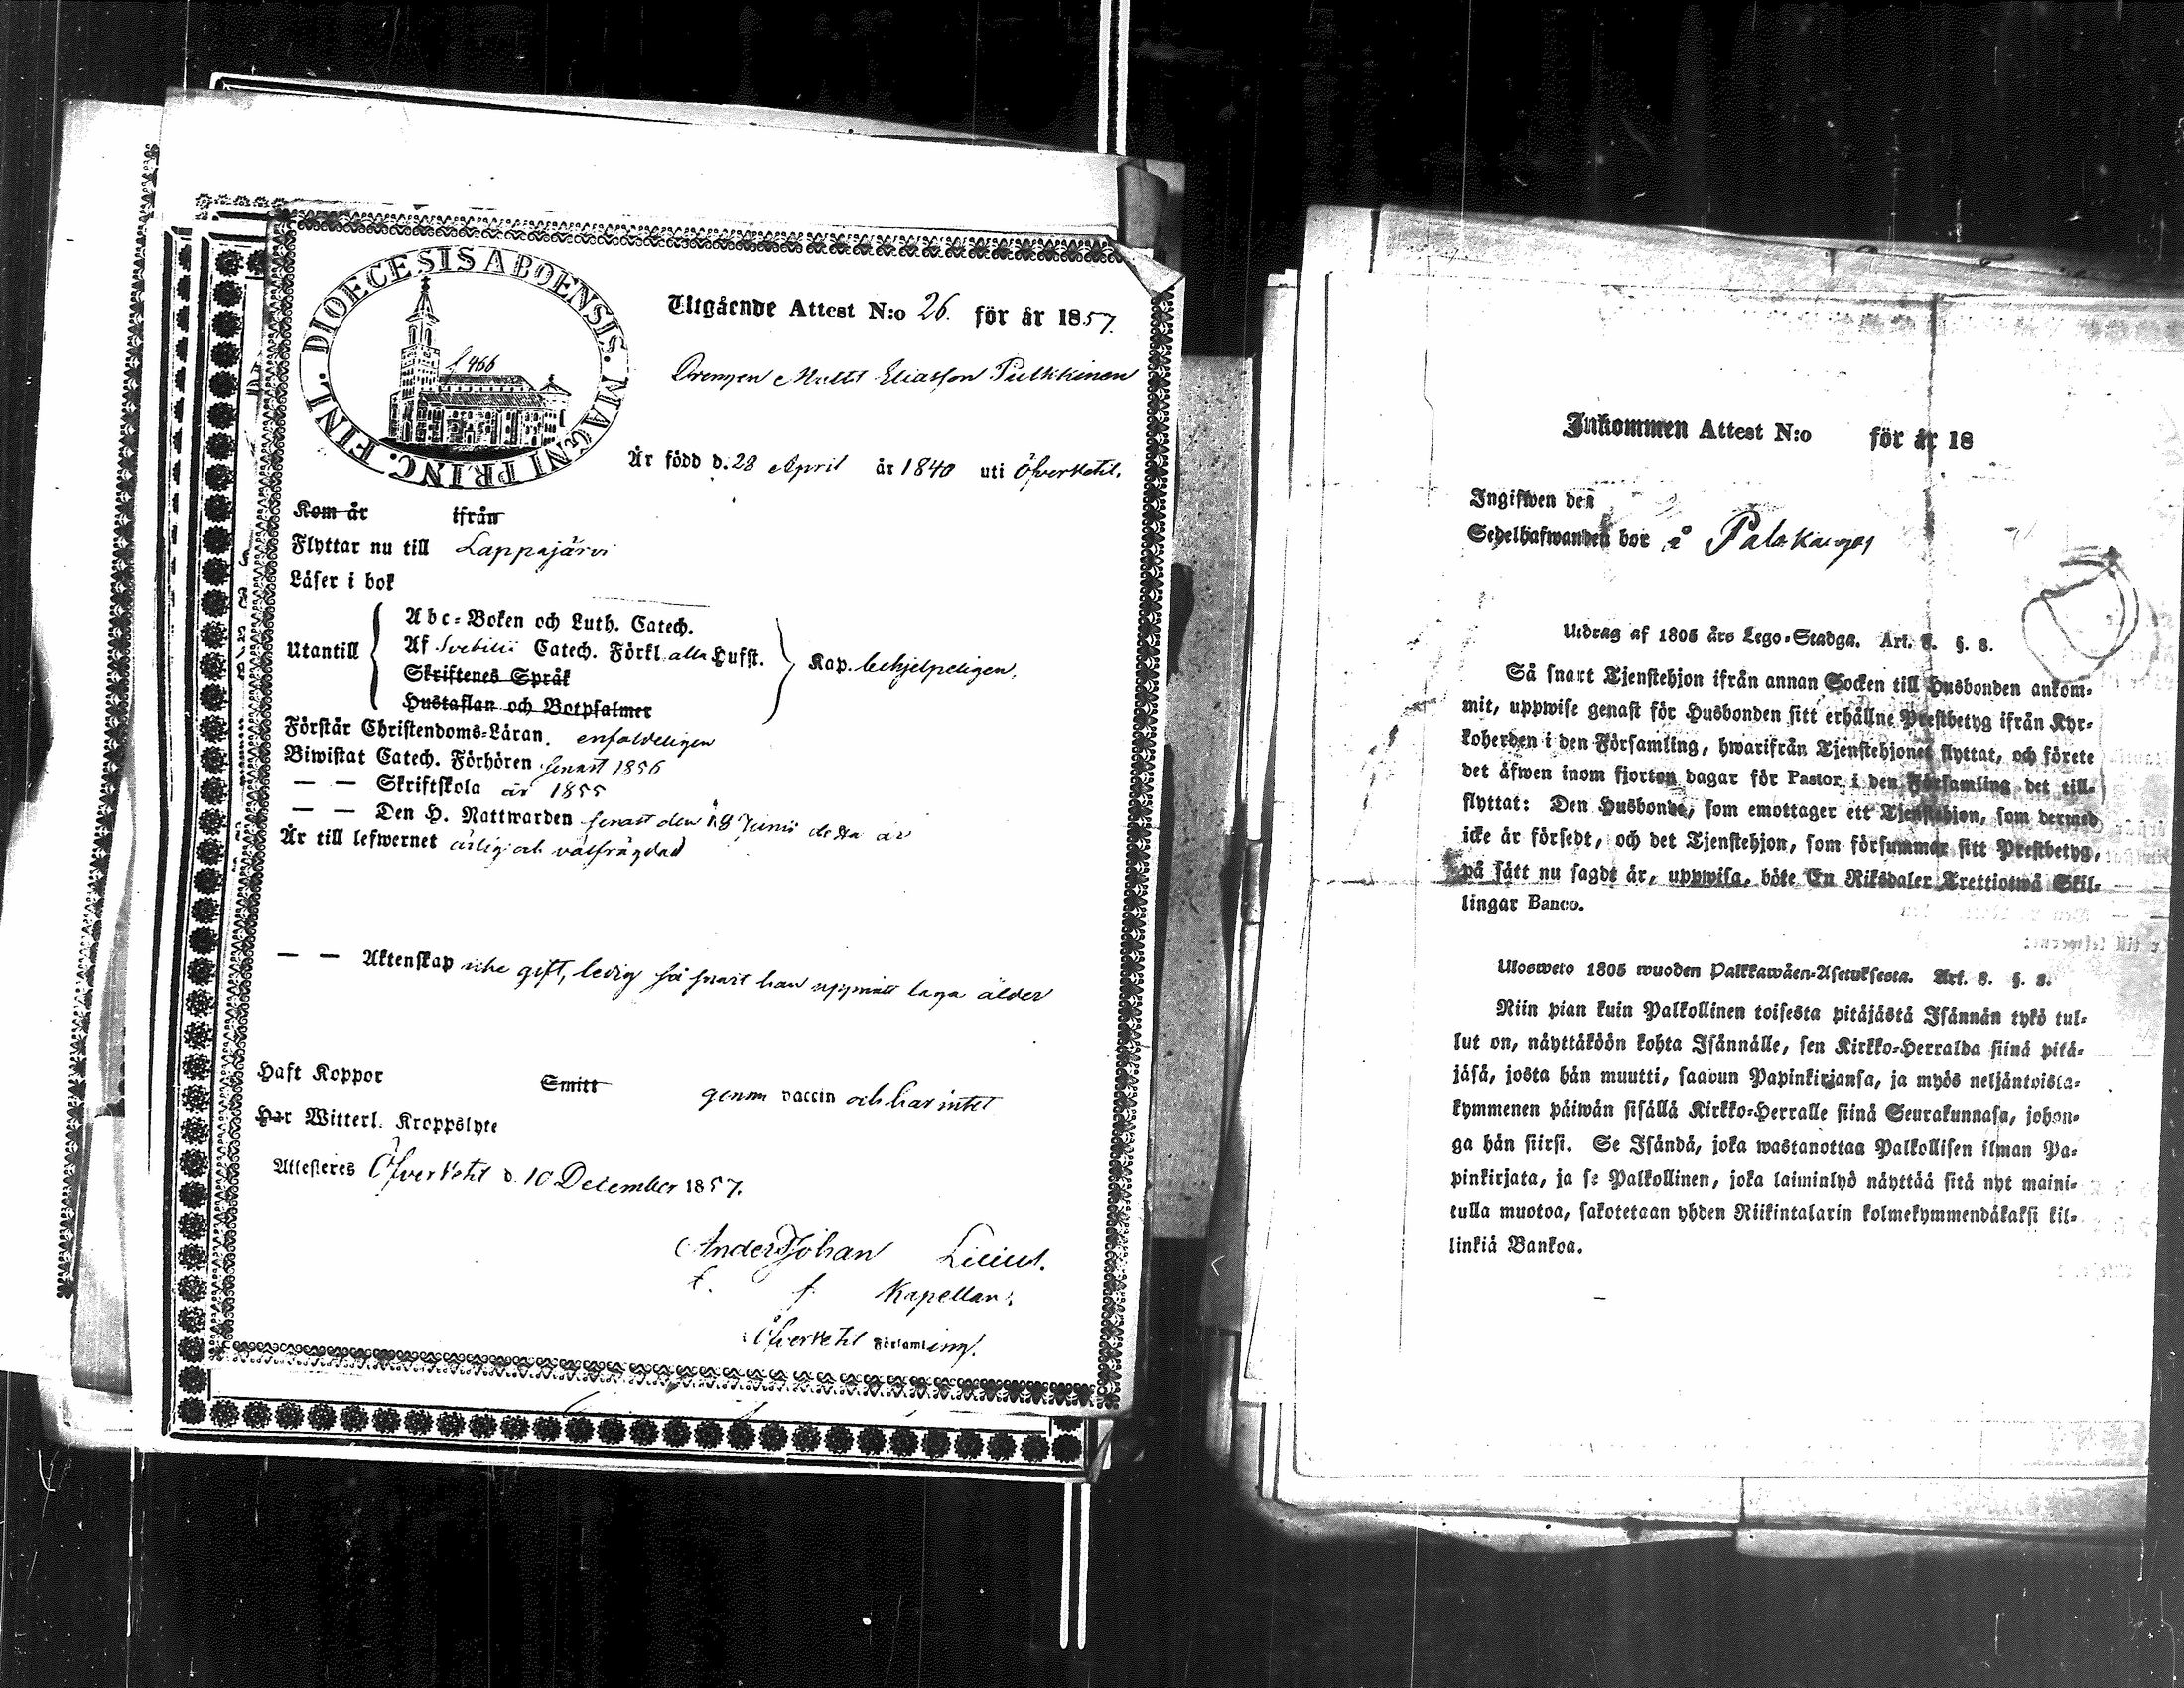 DIOECESIS ABOENSIS. MAGNI PRINC. FINL.
Utgående Attest N:o 26. för år 1857.
466
Drengen Matts Eliasson Pulkkinen
Är född d. 28 April år 1840 uti Öfverketil.
Kom år ifrån
Flyttar nu till Lappajärvi
Läser i bok
Abc-Boken och Luth. Catech.
Utantill Af Svebilii Catech. Förkl. alla Hufst. Kap. behjelpeligen.
Skriftenes Språk
Hustaflan och Botpsalmer
Förstår Christendoms-Läran. enfaldeligen
Biwistat Catech. Förhören senast 1856
— — Skriftskola år 1855
— — Den H. Nattwarden senast den 18 Junii detta år
Är till lefwernet ärlig och välfrägdad
— — Äktenskap icke gift, ledig så snart han uppnått laga ålder
Haft Koppor Smitt genom vaccin och har intet
Har Witterl. Kroppslyte
Attesteres Öfverketil d. 10 December 1857.
Anders Johan Lilius.
t. f. Kapellan i
Öfverketil Församling.
Inkommen Attest N:o för år 18
Ingifwen den
Sedelhafwanden bor å
Utdrag af 1805 års Lego-Stadga. Art. 8. §. 8.
Så snart Tjenstehjon ifrån annan Socken till Husbonden ankom-
mit, uppwise genast för Husbonden sitt erhållne Prestbetyg ifrån Kyr-
koherden i den Församling, hwarifrån Tjenstehjonet flyttat, och förete
det äfwen inom fjorton dagar för Pastor i den Församling det till-
flyttat: Den Husbonde, som emottager ett Tjenstehjon, som dermed
icke är försedt, och det Tjenstehjon, som försummar sitt Prestbetyg,
på sätt nu sagdt är, uppwisa, böte En Riksdaler Trettiotwå Skil-
lingar Banco.
Ulosweto 1805 wuoden Palkkawäen-Asetuksesta. Art. 8. §. 8.
Niin pian kuin Palkollinen toisesta pitäjästä Isännän tykö tul-
lut on, näyttäköön kohta Isännälle, sen Kirkko-Herralda siinä pitä-
jäsä, josta hän muutti, saadun Papinkirjansa, ja myös neljäntoista-
kymmenen päiwän sisällä Kirkko-Herralle siinä Seurakunnasa, johon-
ga hän siirsi. Se Isändä, joka wastanottaa Palkollisen ilman Pa-
pinkirjata, ja se Palkollinen, joka laiminlyö näyttää sitä nyt maini-
tulla muotoa, sakotetaan yhden Riikintalarin kolmekymmendäkaksi kil-
linkiä Bankoa.